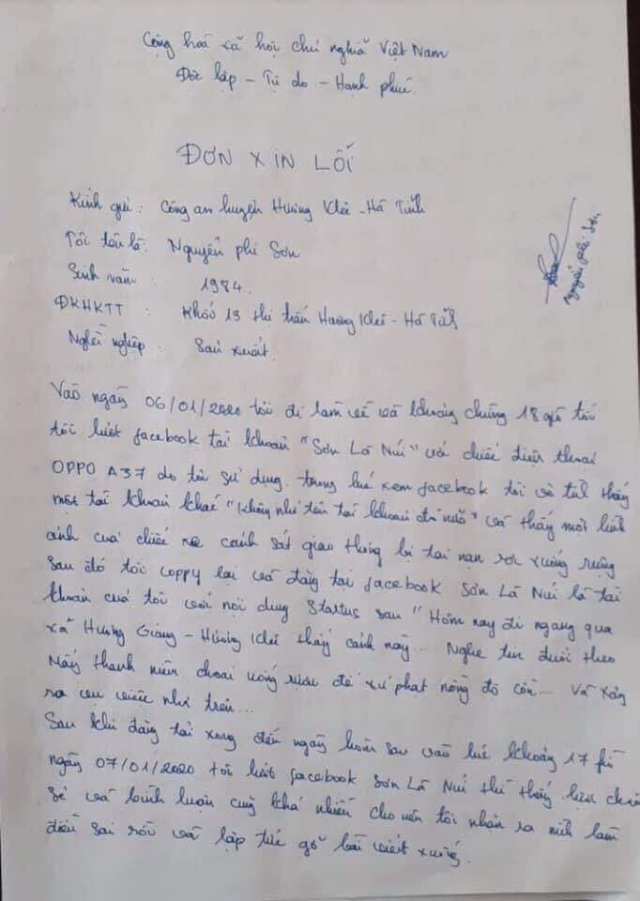 Cộng hoà xã hội chủ nghĩa Việt Nam
Độc lập - Tự do - Hạnh phúc
ĐƠN XIN LỖI
Kính gửi: Công an huyện Hương Khê - Hà Tĩnh
Tôi tên là: Nguyễn phi Sơn
Sinh năm: 1984
ĐKHKTT: Khối 13 thị trấn Hương Khê - Hà Tĩnh
Nghề nghiệp: Sản xuất
Nguyễn phi Sơn
Vào ngày 06/01/2020 tôi đi làm về và khoảng chừng 18 giờ tối
tôi lướt facebook tài khoản "Sơn Lã Núi" với chiếc điện thoại
OPPO A37 do tôi sử dụng. trong lúc xem facebook tôi vô tình thấy
một tài khoản khác "không nhớ tên tài khoản đó nữa" và thấy một hình
ảnh của chiếc xe cảnh sát giao thông bị tai nạn rơi xuống ruộng
sau đó tôi coppy lại và đăng tại facebook Sơn Lã Núi là tài
khoản của tôi với nội dung Startus sau "Hôm nay đi ngang qua
xã Hương Giang - Hương Khê thấy cảnh này... Nghe tin đuổi theo
Mấy thanh niên choai uống rượu để xử phạt nồng độ cồn... Và xảy
ra sự việc như trên...
Sau khi đăng tải xong đến ngày hôm sau vào lúc khoảng 17 giờ
ngày 07/01/2020 tôi lướt facebook Sơn Lã Núi thì thấy lượt chia
sẻ và bình luận cũng khá nhiều cho nên tôi nhận ra mình làm
điều sai rồi và lập tức gỡ bài viết xuống.